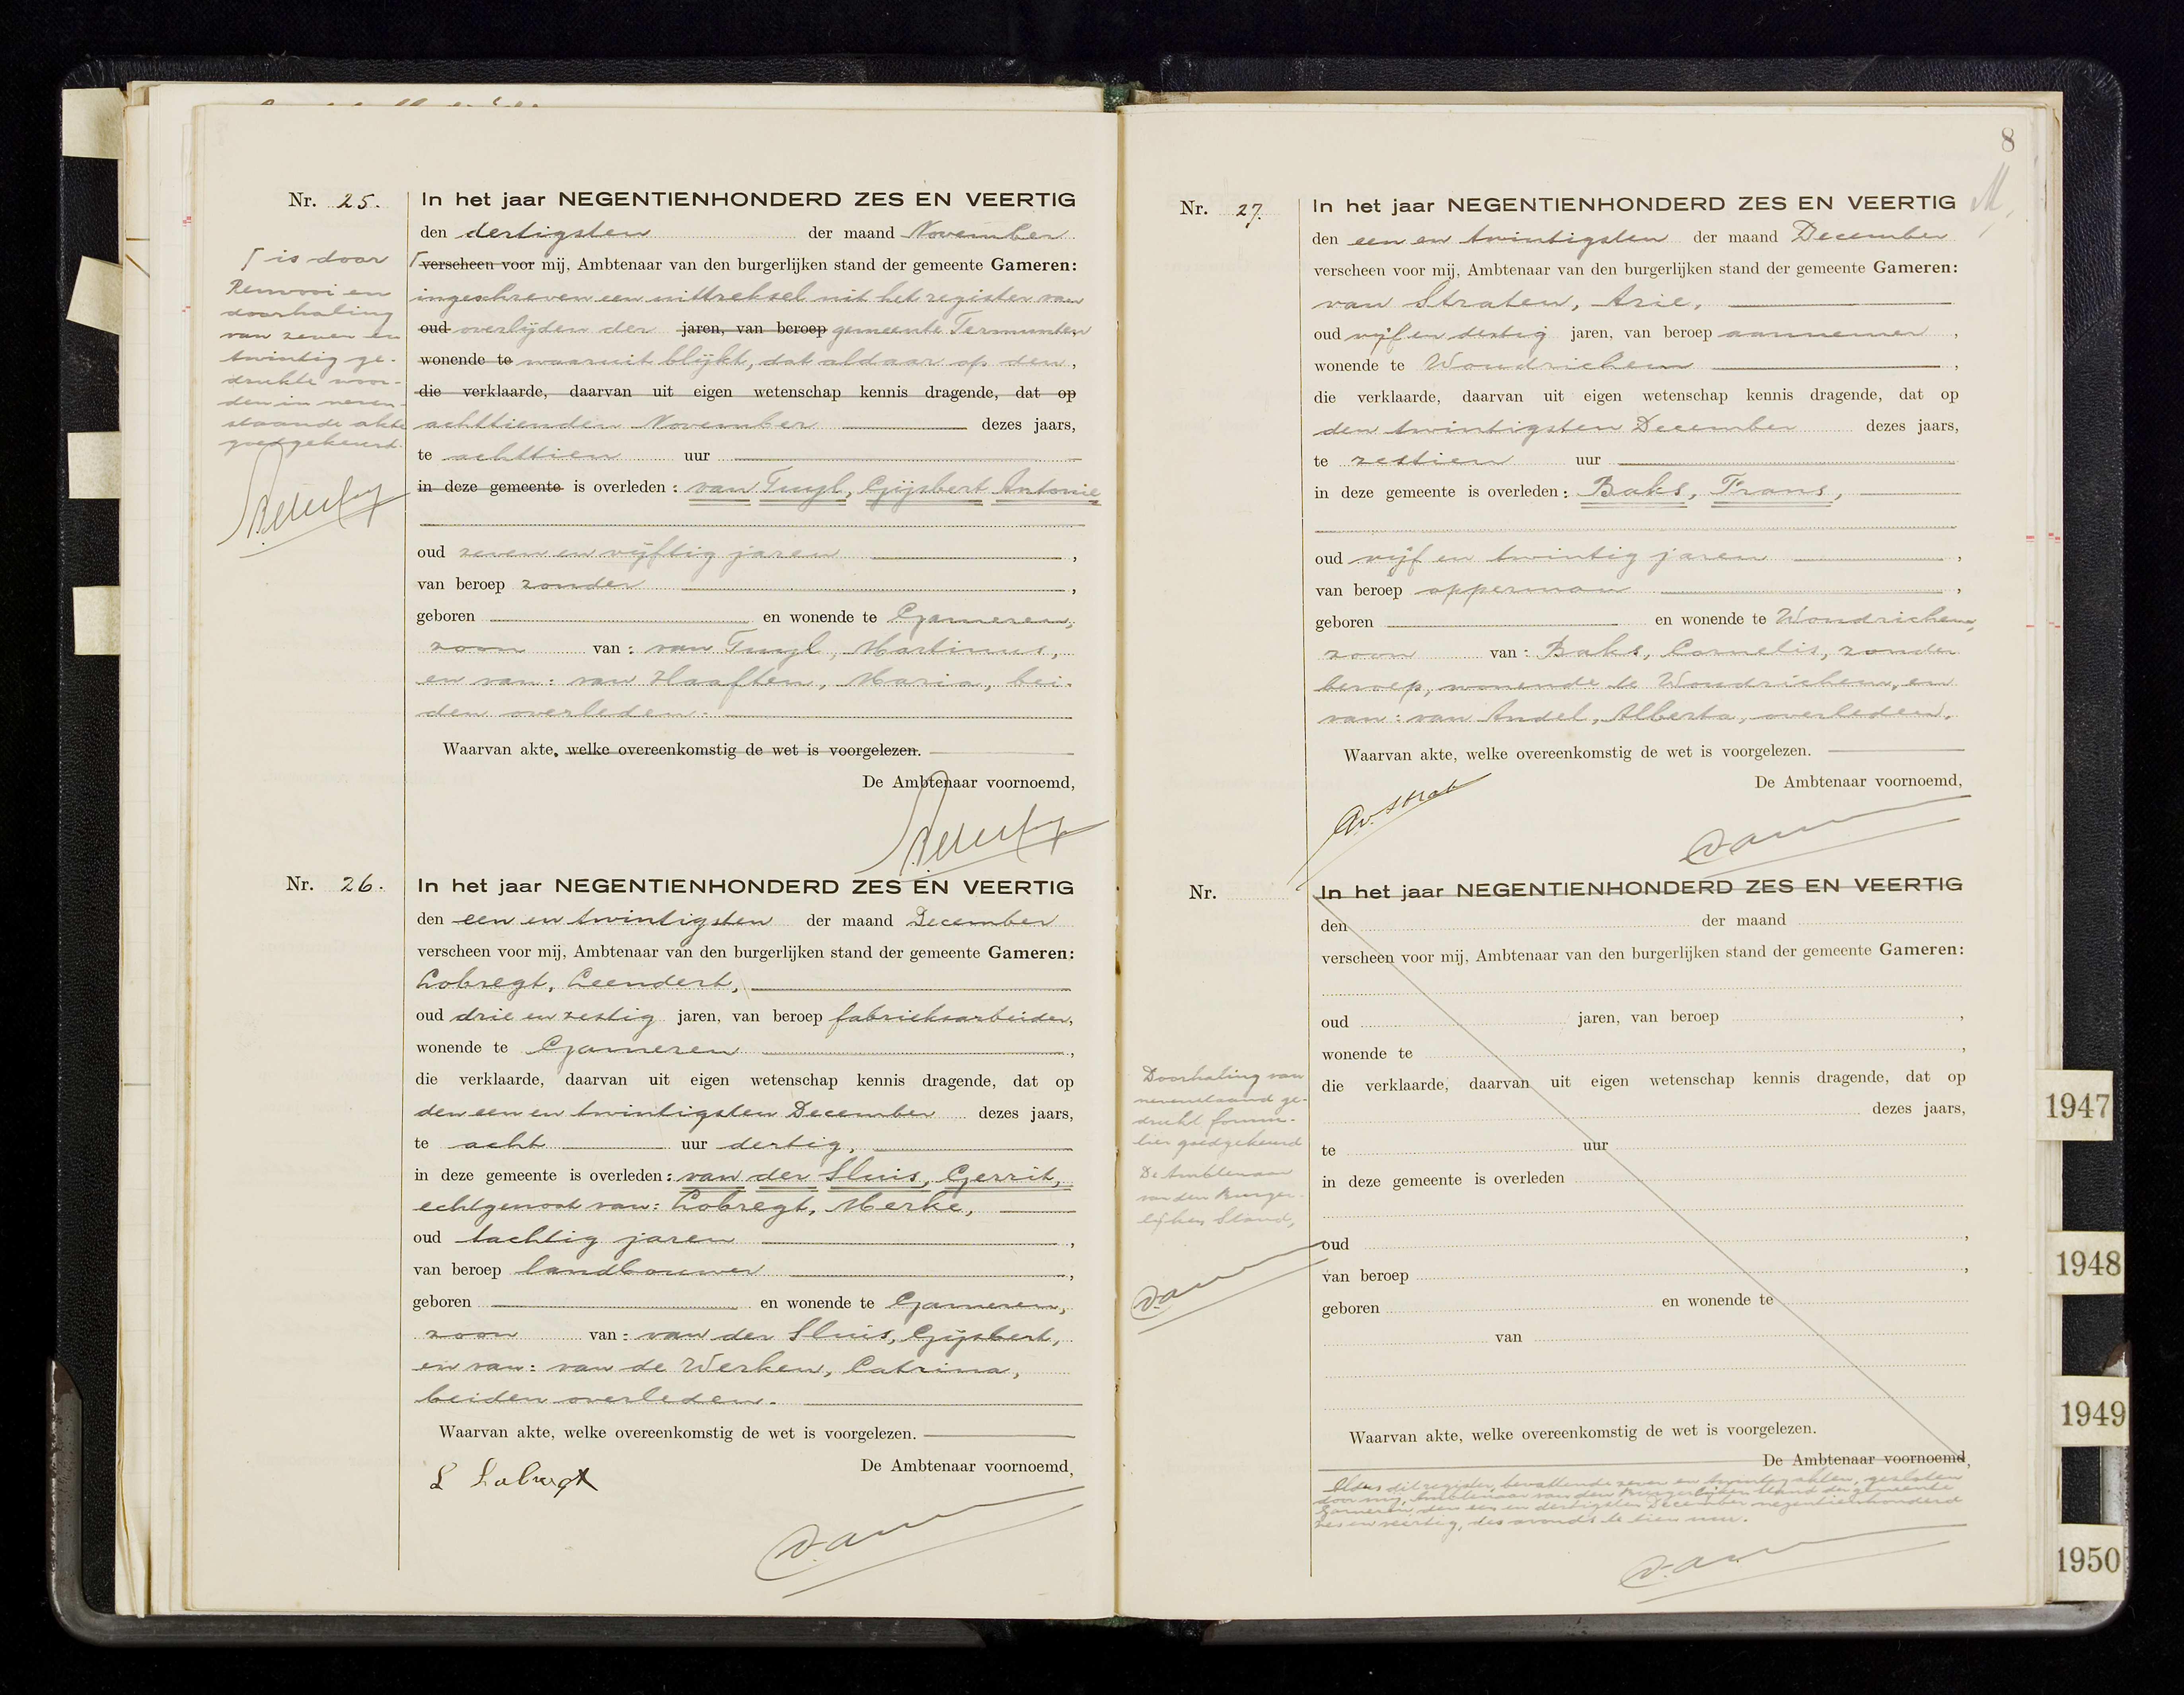 Nr. 25.
In het jaar NEGENTIENHONDERD ZES EN VEERTIG
den dertigsten der maand November
┌ is door
┌ verscheen voor mij, Ambtenaar van den burgerlijken stand der gemeente Gameren:
Renvooi en
doorhaling
van zeven en
twintig ge-
drukte woor-
den in neven-
staande akte
goedgekeurd.
ingeschreven een uittreksel uit het register van
oud overlijden der jaren, van beroep gemeente Termunten,
wonende te waaruit blijkt, dat aldaar op den,
die verklaarde, daarvan uit eigen wetenschap kennis dragende, dat op
achttienden November dezes jaars,
te achttien uur
in deze gemeente is overleden: van Tuyl, Gijsbert Antonie
oud zeven en vijftig jaren,
van beroep zonder,
geboren en wonende te Gameren,
zoon van: van Tuyl, Martinus,
en van: van Haaften, Maria, bei-
den overleden.
Waarvan akte, welke overeenkomstig de wet is voorgelezen.
De Ambtenaar voornoemd,
Nr. 26.
In het jaar NEGENTIENHONDERD ZES EN VEERTIG
den een en twintigsten der maand December
verscheen voor mij, Ambtenaar van den burgerlijken stand der gemeente Gameren:
Lobregt, Leendert,
oud drie en zestig jaren, van beroep fabrieksarbeider,
wonende te Gameren,
die verklaarde, daarvan uit eigen wetenschap kennis dragende, dat op
den een en twintigsten December dezes jaars,
te acht uur dertig,
in deze gemeente is overleden: van der Sluis, Gerrit,
echtgenoot van: Lobregt, Merke,
oud tachtig jaren,
van beroep landbouwer,
geboren en wonende te Gameren,
zoon van: van der Sluis, Gijsbert,
en van: van de Werken, Catrina,
beiden overleden.
Waarvan akte, welke overeenkomstig de wet is voorgelezen.
De Ambtenaar voornoemd,
L Lobregt
8
Nr. 27.
In het jaar NEGENTIENHONDERD ZES EN VEERTIG
den een en twintigsten der maand December
verscheen voor mij, Ambtenaar van den burgerlijken stand der gemeente Gameren:
van Straten, Arie,
oud vijf en dertig jaren, van beroep aannemer,
wonende te Woudrichem,
die verklaarde, daarvan uit eigen wetenschap kennis dragende, dat op
den twintigsten December dezes jaars,
te zestien uur
in deze gemeente is overleden: Baks, Frans,
oud vijf en twintig jaren,
van beroep opperman,
geboren en wonende te Woudrichem,
zoon van: Baks, Cornelis, zonder
beroep, wonende te Woudrichem, en
van: van Andel, Alberta, overleden.
Waarvan akte, welke overeenkomstig de wet is voorgelezen.
De Ambtenaar voornoemd,
Av. Strat
Nr.
In het jaar NEGENTIENHONDERD ZES EN VEERTIG
den der maand
verscheen voor mij, Ambtenaar van den burgerlijken stand der gemeente Gameren:
oud jaren, van beroep,
wonende te,
die verklaarde, daarvan uit eigen wetenschap kennis dragende, dat op
dezes jaars,
te uur
in deze gemeente is overleden
oud,
van beroep,
geboren en wonende te
van
Waarvan akte, welke overeenkomstig de wet is voorgelezen.
De Ambtenaar voornoemd,
Doorhaling van
nevenstaand ge-
drukt formu-
lier goedgekeurd
De Ambtenaar
van den Burger-
lijken Stand,
Aldus dit register, bevattende zeven en twintig akten, gesloten
door mij, Ambtenaar van den Burgerlijken Stand der gemeente
Gameren, den een en dertigsten December negentienhonderd
zes en veertig, des avonds te tien uur.
1947
1948
1949
1950